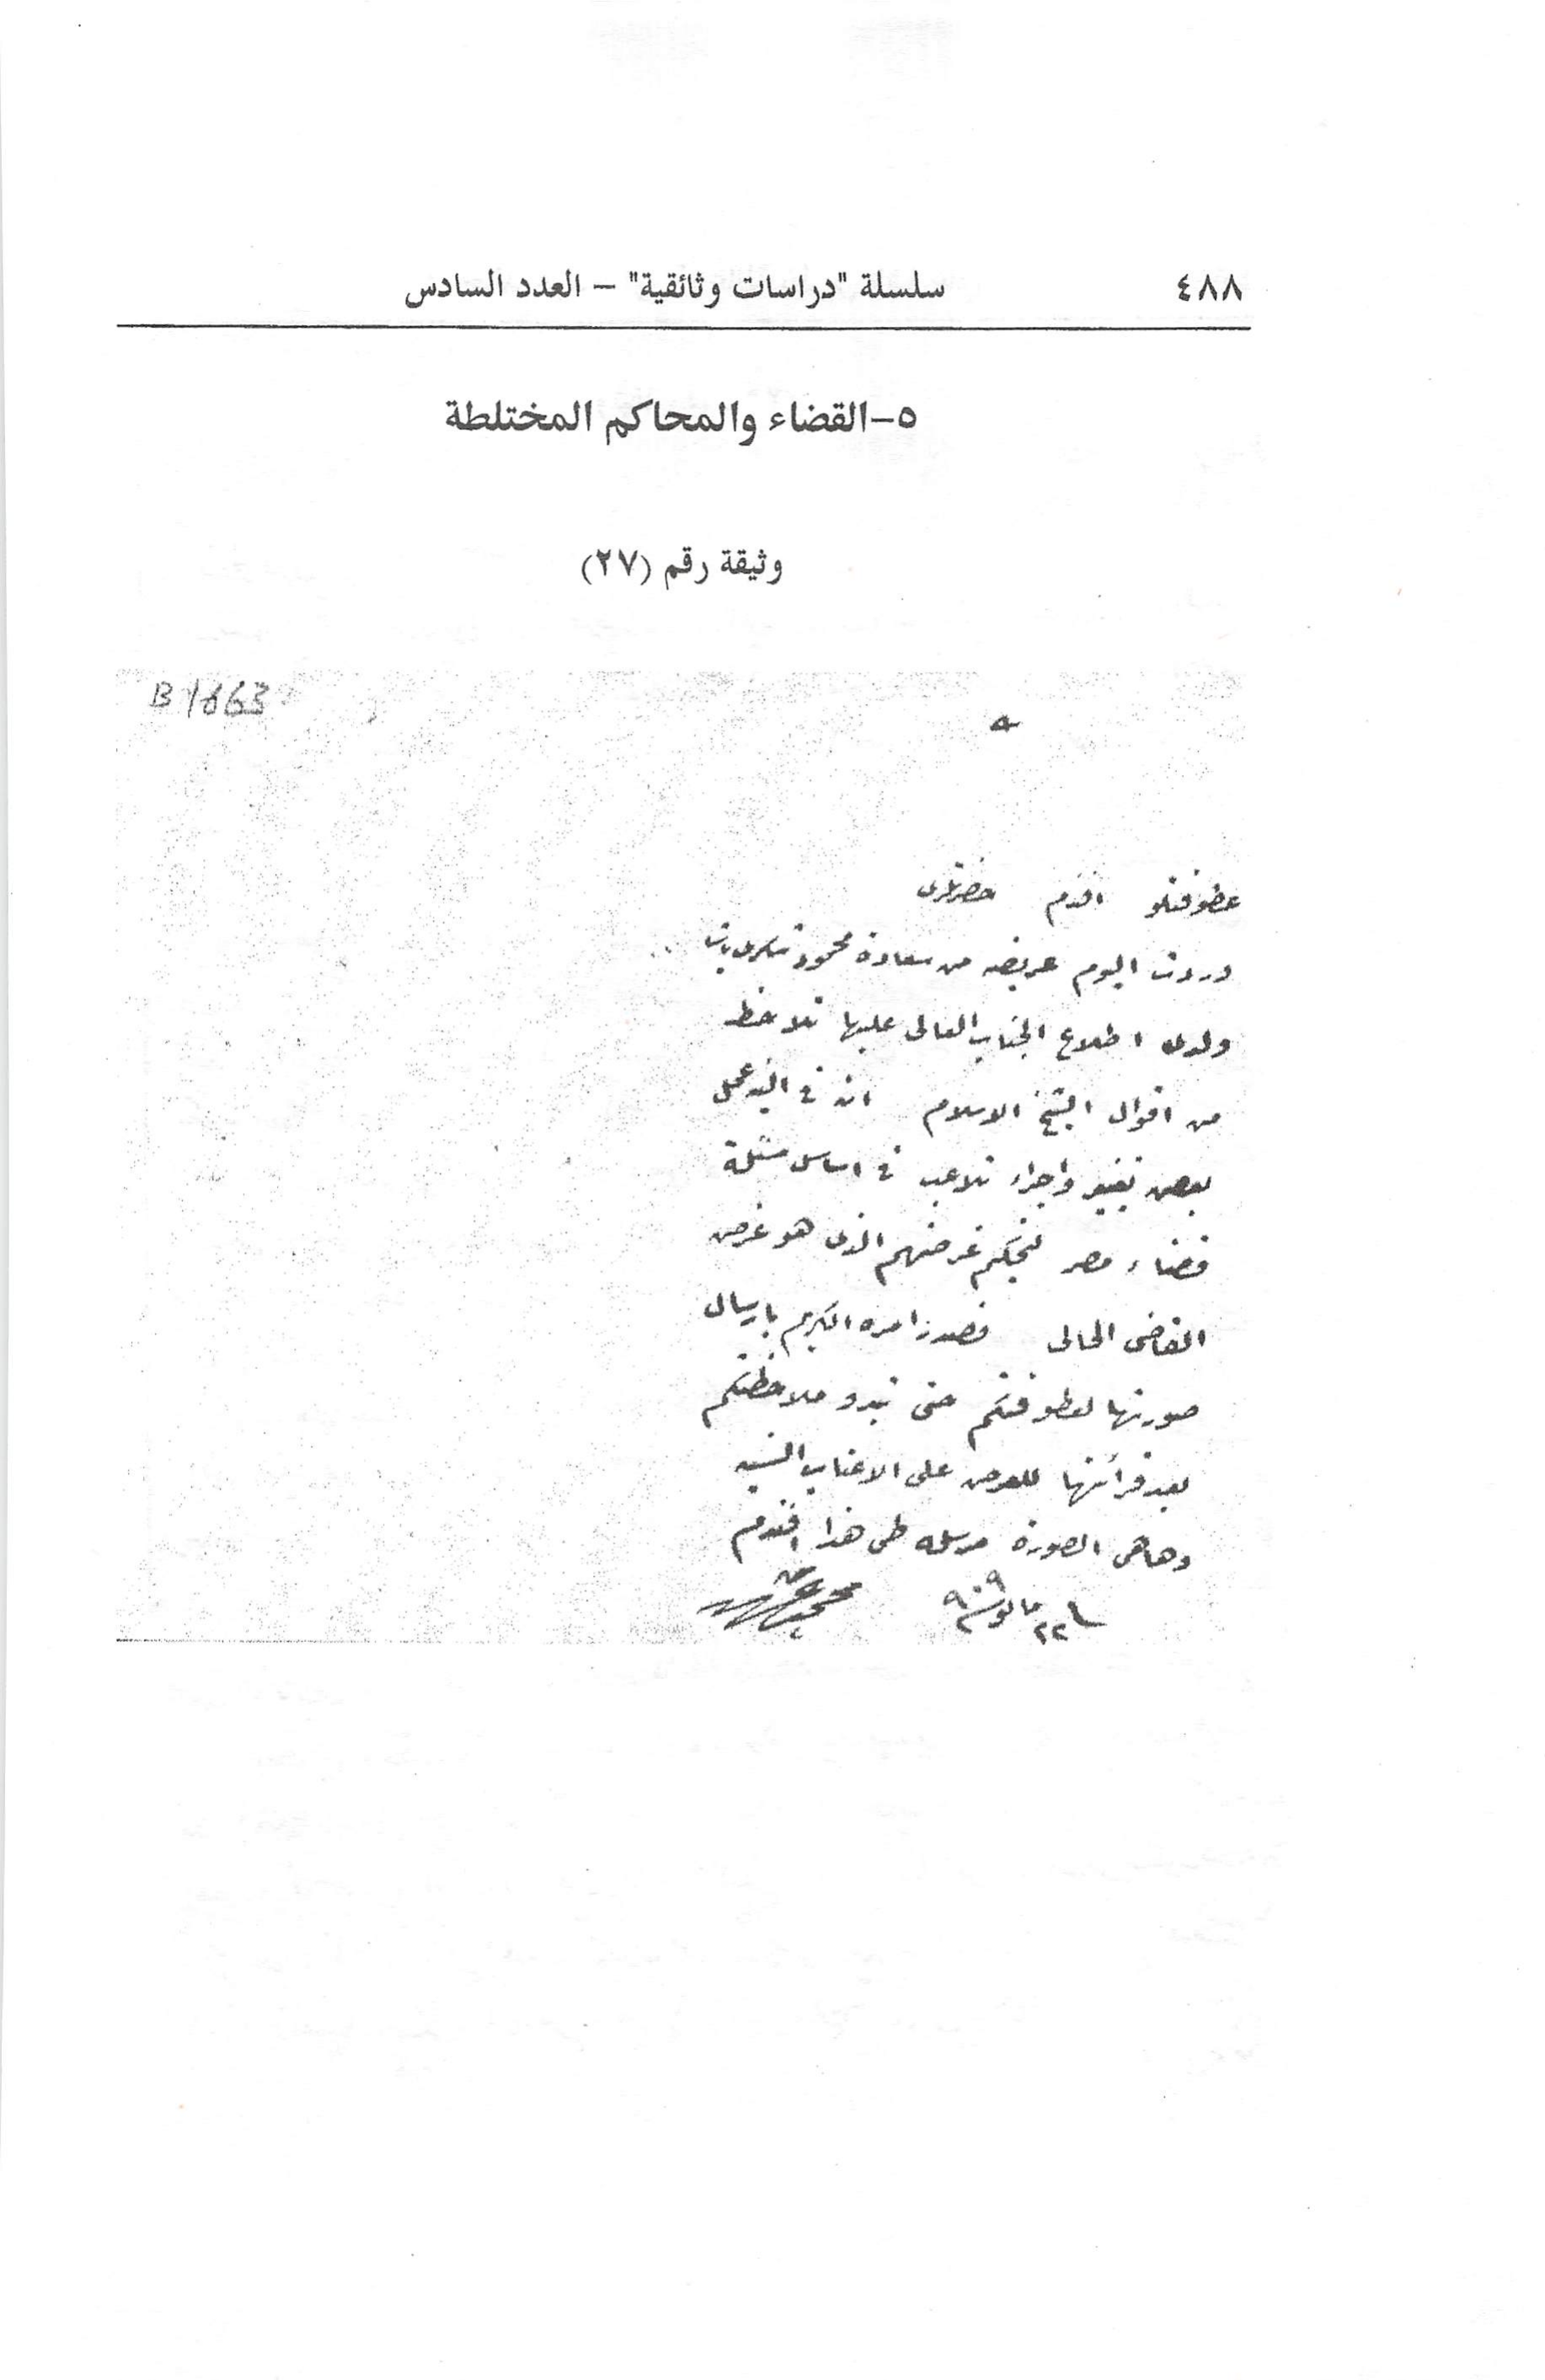 ٤٨٨
سلسلة "دراسات وثائقية" – العدد السادس
٥-القضاء والمحاكم المختلطة
وثيقة رقم (٢٧)
B 1863
عطوفتلو افندم حضرتلرى
وردت اليوم عريضه من سعادة محمود شكرى باشا
ولدى اطلاع الجناب العالى عليها تلاحظ
من اقوال الشيخ الاسلام ان فى النيه عمل
بعض تغيير واجراء تلاعب فى اساس مسئلة
قضاء مصر غرضهم الذى هو غرض
القاضى الحالى فصدر امره الكريم بارسال
صورتها لعطوفتكم حتى تبدو ملاحظتكم
بعد قرائتها للعرض على الاعتاب السنيه
وهاهى الصورة مرسله طى هذا افندم
٢٢ مايو سنة